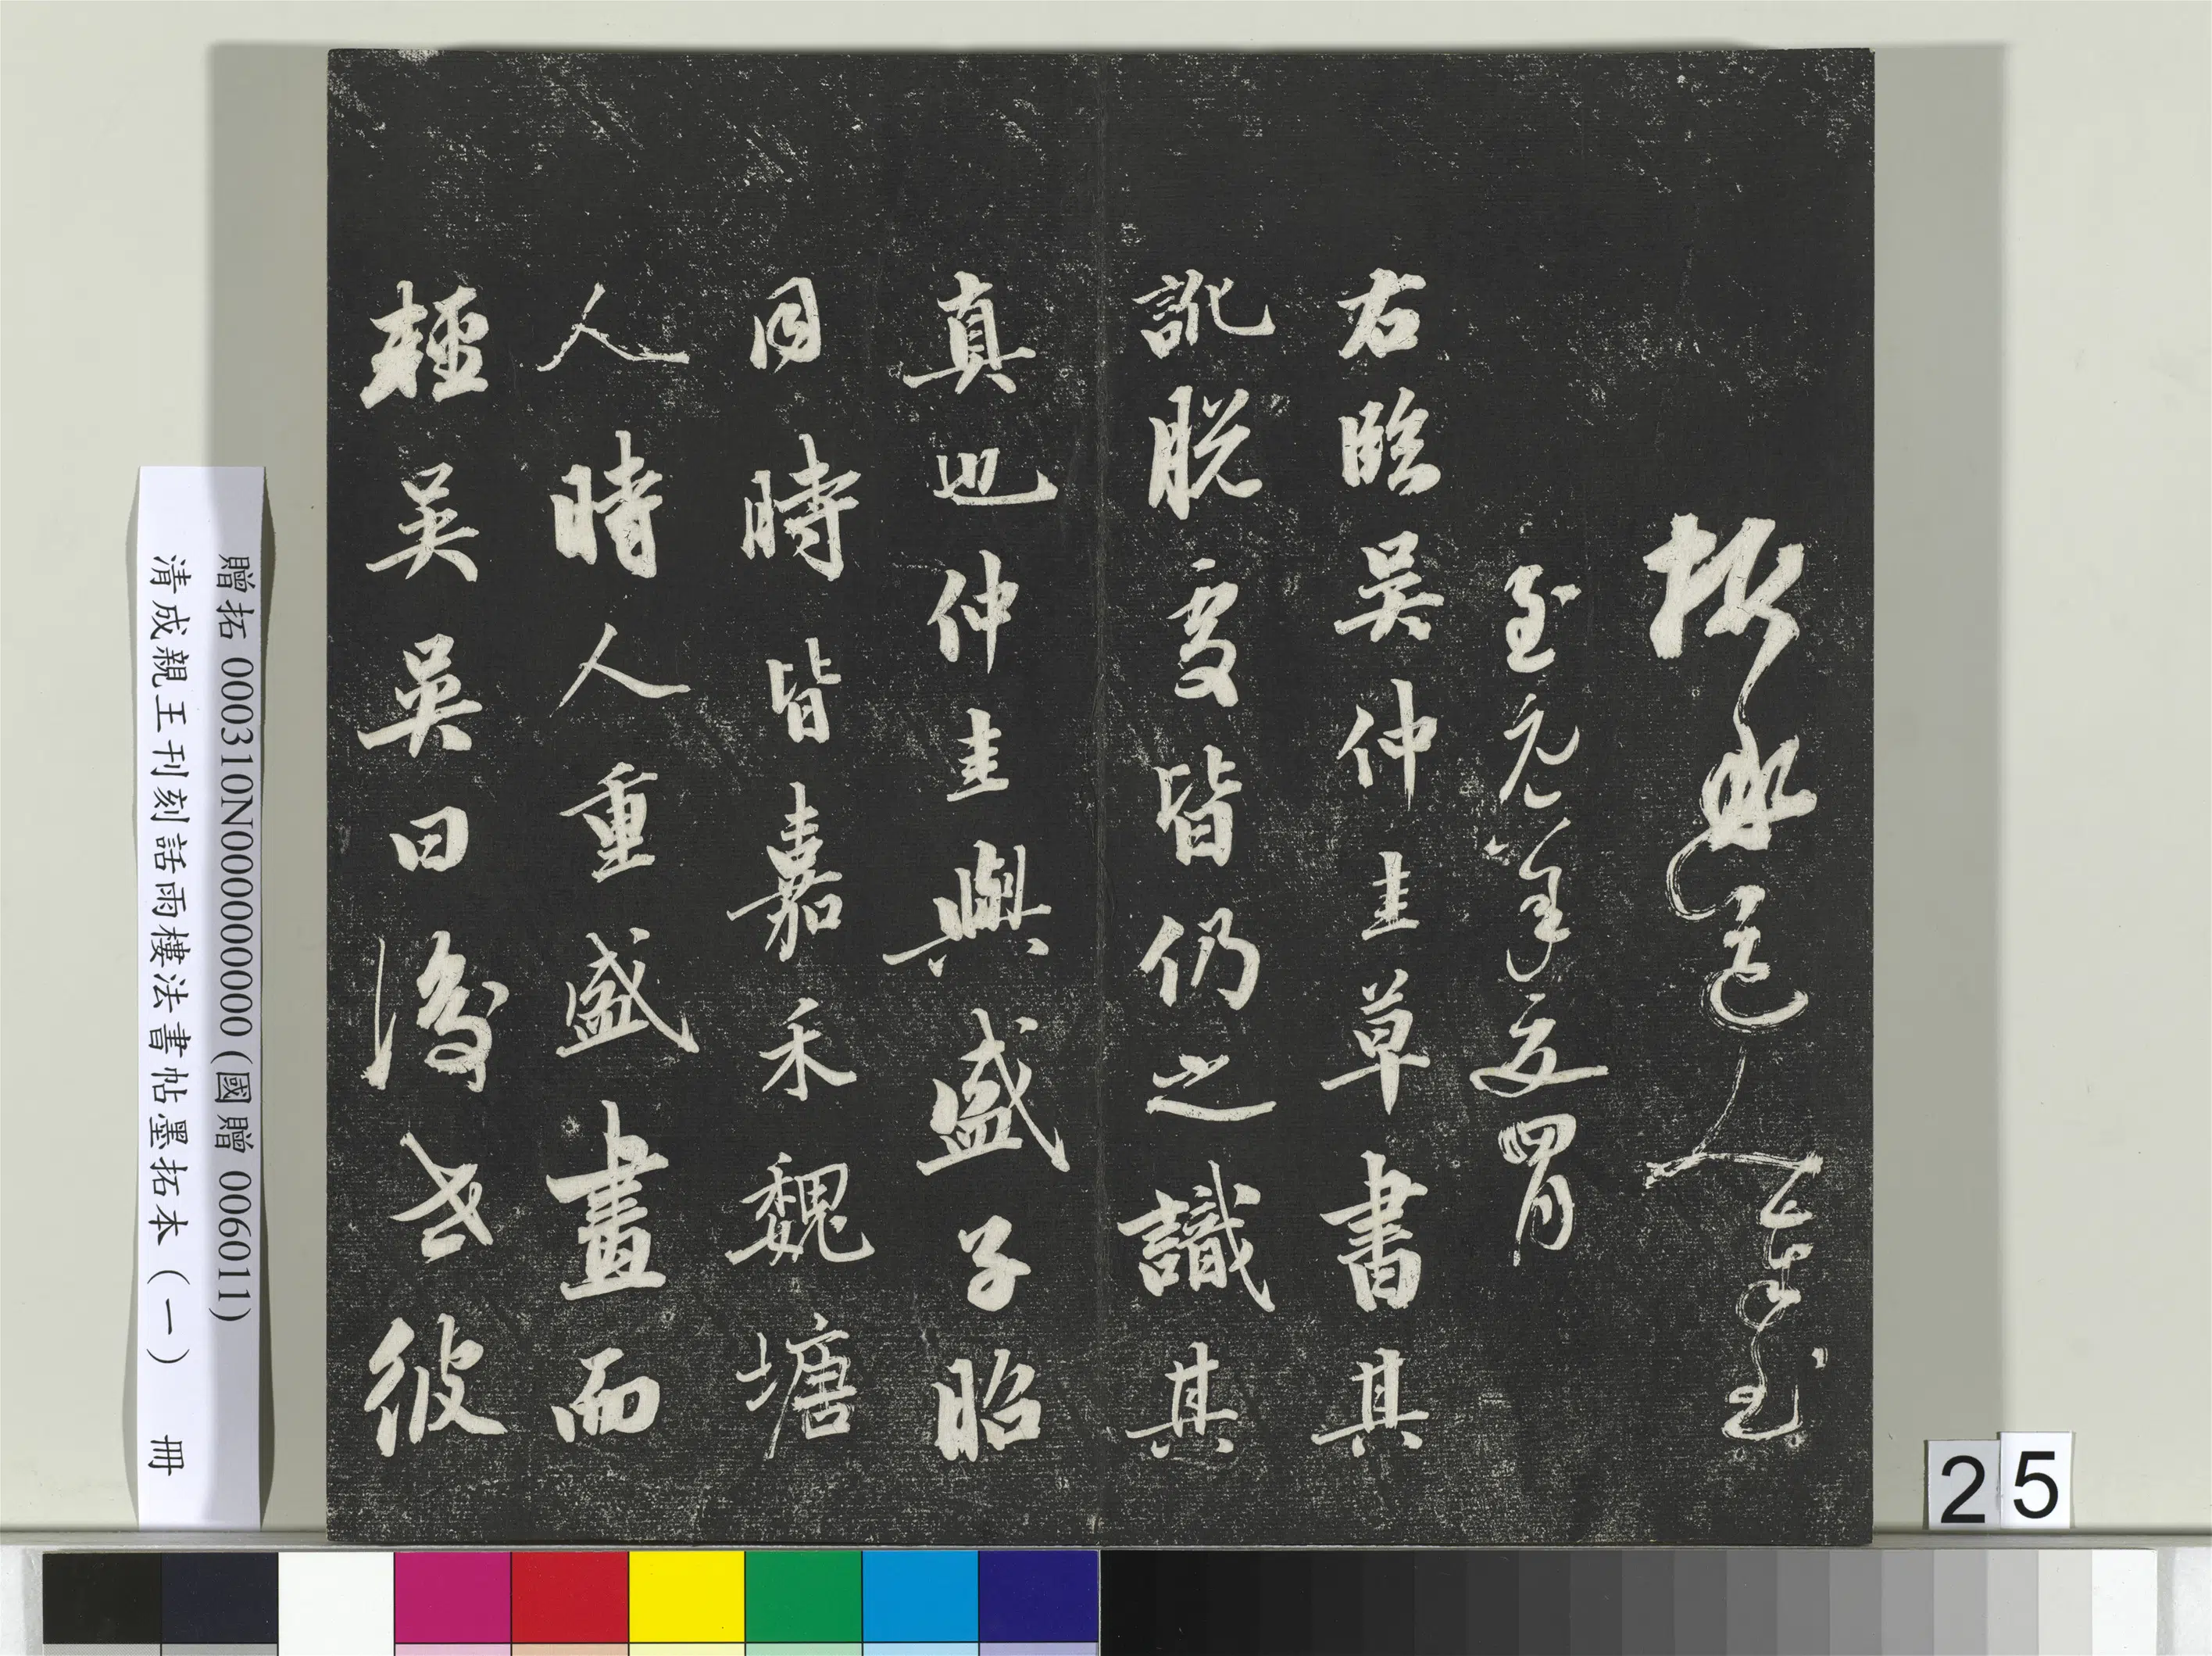 道人
至元年夏四月
右臨吳仲圭草書其
訛脫處皆仍之識其
真也仲圭與盛子昭
同時皆嘉禾魏塘
人時人重盛畫而
輕吳吳曰後世彼
贈拓 000310N000000000 (國贈 006011)
清成親王刊刻話雨樓法書帖墨拓本(一) 冊
25